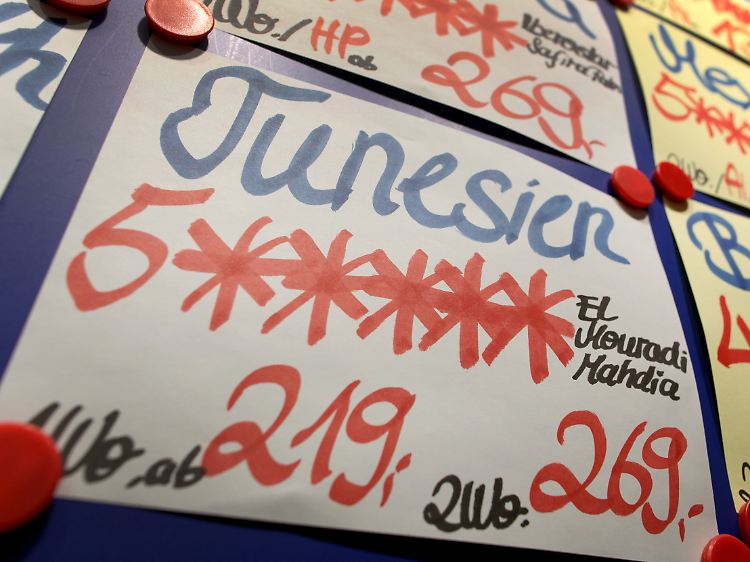 Wo./HP ab
269,-
Iberostar
Tunesien
5*****
El
Mouradi
Mahdia
1Wo. ab 219,-
2Wo. 269,-
5***
2Wo./